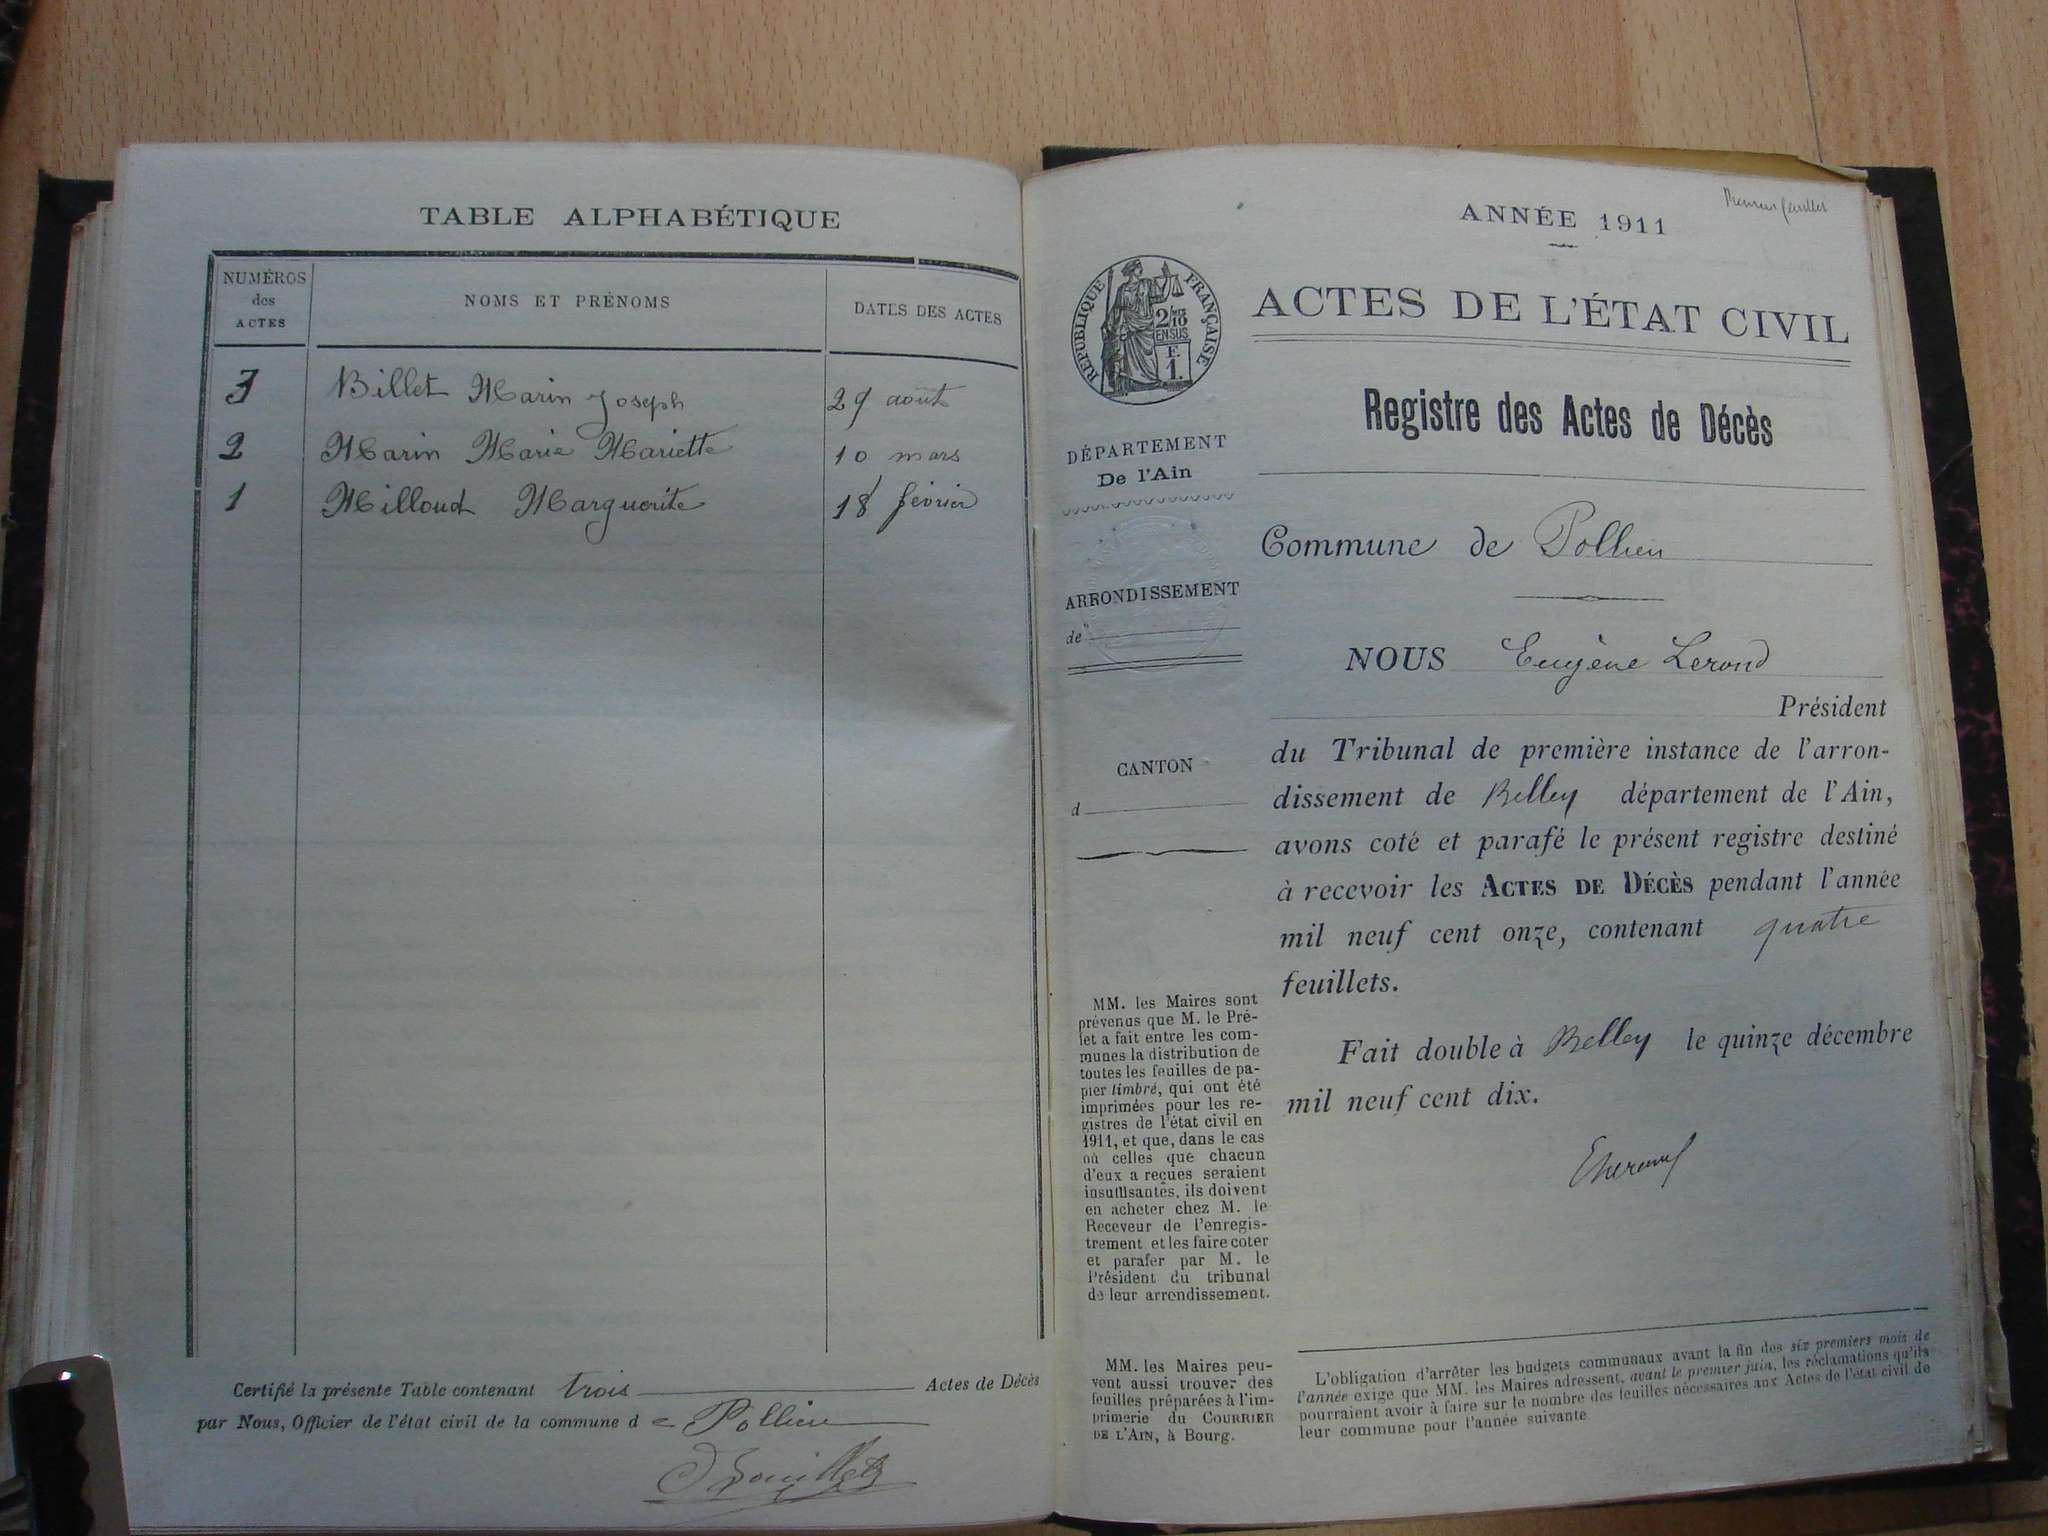 TABLE ALPHABÉTIQUE
NUMÉROS
des
ACTES
NOMS ET PRÉNOMS
DATES DES ACTES
3 Billet Marin Joseph 29 août
2 Marin Marie Mariette 10 mars
1 Milloud Marguerite 18 février
Certifié la présente Table contenant trois Actes de Décès
par Nous, Officier de l'état civil de la commune de Pollieu
Premier feuillet
ANNÉE 1911
RÉPUBLIQUE FRANÇAISE
2/10
EN SUS
F.
1.
ACTES DE L'ÉTAT CIVIL
Registre des Actes de Décès
DÉPARTEMENT
De l'Ain
Commune de Pollieu
ARRONDISSEMENT
de
CANTON
d
NOUS Eugène Lerond
Président
du Tribunal de première instance de l'arron-
dissement de Belley département de l'Ain,
avons coté et parafé le présent registre destiné
à recevoir les ACTES DE DÉCÈS pendant l'année
mil neuf cent onze, contenant quatre
feuillets.
Fait double à Belley le quinze décembre
mil neuf cent dix.
MM. les Maires sont
prévenus que M. le Pré-
fet a fait entre les com-
munes la distribution de
toutes les feuilles de pa-
pier timbré, qui ont été
imprimées pour les re-
gistres de l'état civil en
1911, et que, dans le cas
où celles que chacun
d'eux a reçues seraient
insuffisantes, ils doivent
en acheter chez M. le
Receveur de l'enregis-
trement et les faire coter
et parafer par M. le
Président du tribunal
de leur arrondissement.
MM. les Maires peu-
vent aussi trouver des
feuilles préparées à l'im-
primerie du COURRIER
DE L'AIN, à Bourg.
L'obligation d'arrêter les budgets communaux avant la fin des six premiers mois de
l'année exige que MM. les Maires adressent, avant le premier juin, les réclamations qu'ils
pourraient avoir à faire sur le nombre des feuilles nécessaires aux Actes de l'état civil de
leur commune pour l'année suivante